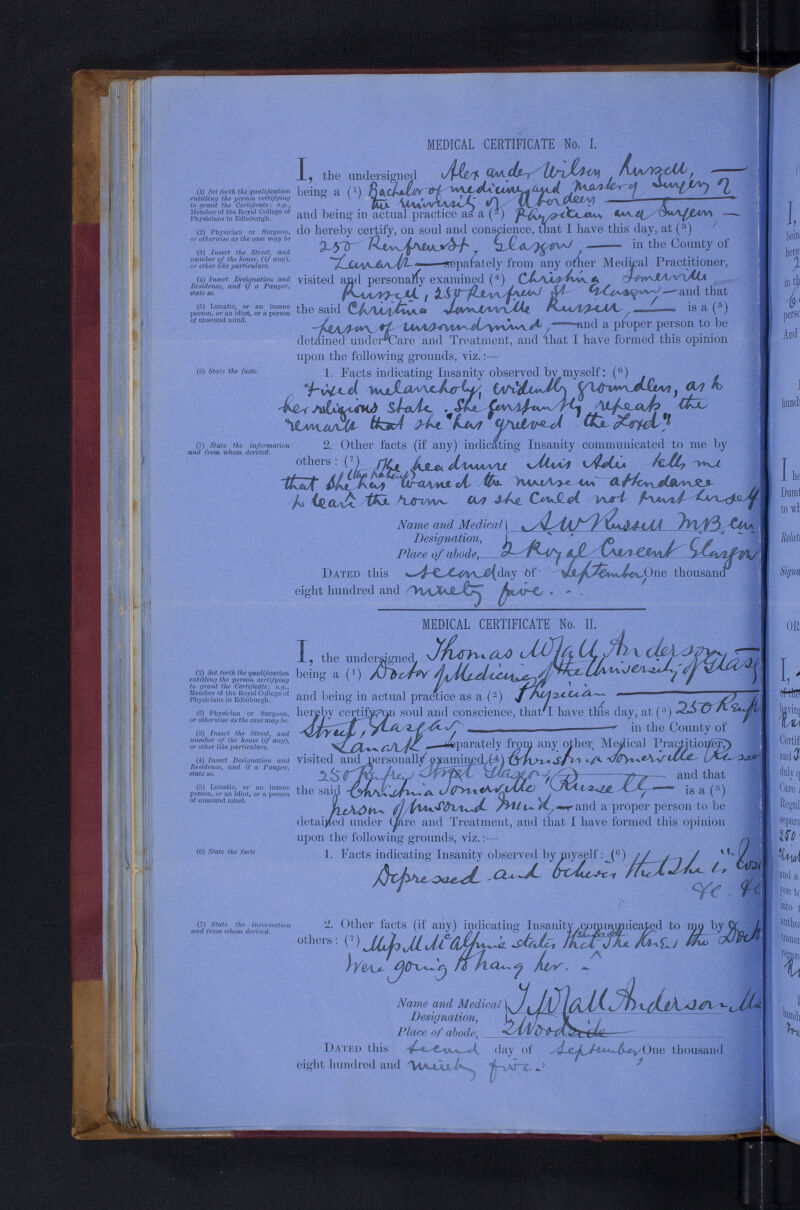 MEDICAL CERTIFICATE No. I.
I, the undersigned Alexander Wilson Russell,
(1) Set forth the qualification entitling the person certifying to grant the Certificate: e.g., Member of the Royal College of Physicians in Edinburgh.
being a (1) Bachelor of medicine and Master of Surgery of
the University of Aberdeen
and being in actual practice as a (2) Physician and Surgeon
(2) Physician or Surgeon, or otherwise as the case may be
do hereby certify, on soul and conscience, that I have this day, at (3)
250 Renfrew St, Glasgow, in the County of
(3) Insert the Street, and number of the house, (if any), or other like particulars.
Lanark separately from any other Medical Practitioner,
(4) Insert Designation and Residence, and if a Pauper, state so.
visited and personally examined (4) Christina Somerville
Russell, 250 Renfrew St Glasgow and that
(5) Lunatic, or an insane person, or an idiot, or a person of unsound mind.
the said Christina Somerville Russell, is a (5)
person of unsound mind, and a proper person to be
detained under Care and Treatment, and that I have formed this opinion
upon the following grounds, viz.:—
(6) State the facts.
1. Facts indicating Insanity observed by myself: (6)
Fixed melancholy, evidently groundless, as to
her religious state. She constantly repeats the
remark that she "has grieved the Lord"
(7) State the information and from whom derived.
2. Other facts (if any) indicating Insanity communicated to me by
others: (7) The head nurse Miss Adie tells me
that she (the patient) has warned the nurse in attendance
to leave the room as she could not trust herself
Name and Medical Designation, A W Russell M.B. Cm
Place of abode, 2 Royal Crescent Glasgow
DATED this second day of September One thousand
eight hundred and ninety five.
MEDICAL CERTIFICATE No. II.
I, the undersigned, Thomas McCall Anderson
(1) Set forth the qualification entitling the person certifying to grant the Certificate: e.g., Member of the Royal College of Physicians in Edinburgh.
being a (1) Doctor of Medicine of the University of Glasg
and being in actual practice as a (2) Physician
(2) Physician or Surgeon, or otherwise as the case may be.
hereby certify on soul and conscience, that I have this day, at (3) 250 Renf
Street, Glasgow, in the County of
(3) Insert the Street, and number of the house (if any), or other like particulars.
Lanark separately from any other Medical Practitioner,
(4) Insert Designation and Residence, and if a Pauper, state so.
visited and personally examined (4) Christina Somerville Russe
250 Renfrew Street Glasgow and that
(5) Lunatic, or an insane person, or an idiot, or a person of unsound mind.
the said Christina Somerville Russell, is a (5)
person of unsound mind, and a proper person to be
detained under Care and Treatment, and that I have formed this opinion
upon the following grounds, viz.:—
(6) State the facts
1. Facts indicating Insanity observed by myself: (6)
Depressed and believes that she is "
&c. &c
(7) State the information and from whom derived.
2. Other facts (if any) indicating Insanity communicated to me by
others: (7) Miss M McAlpine states that she knew the Doct
were going to hang her.
Name and Medical Designation, T McCall Anderson
Place of abode, 2 Woodside
DATED this second day of September One thousand
eight hundred and ninety five.